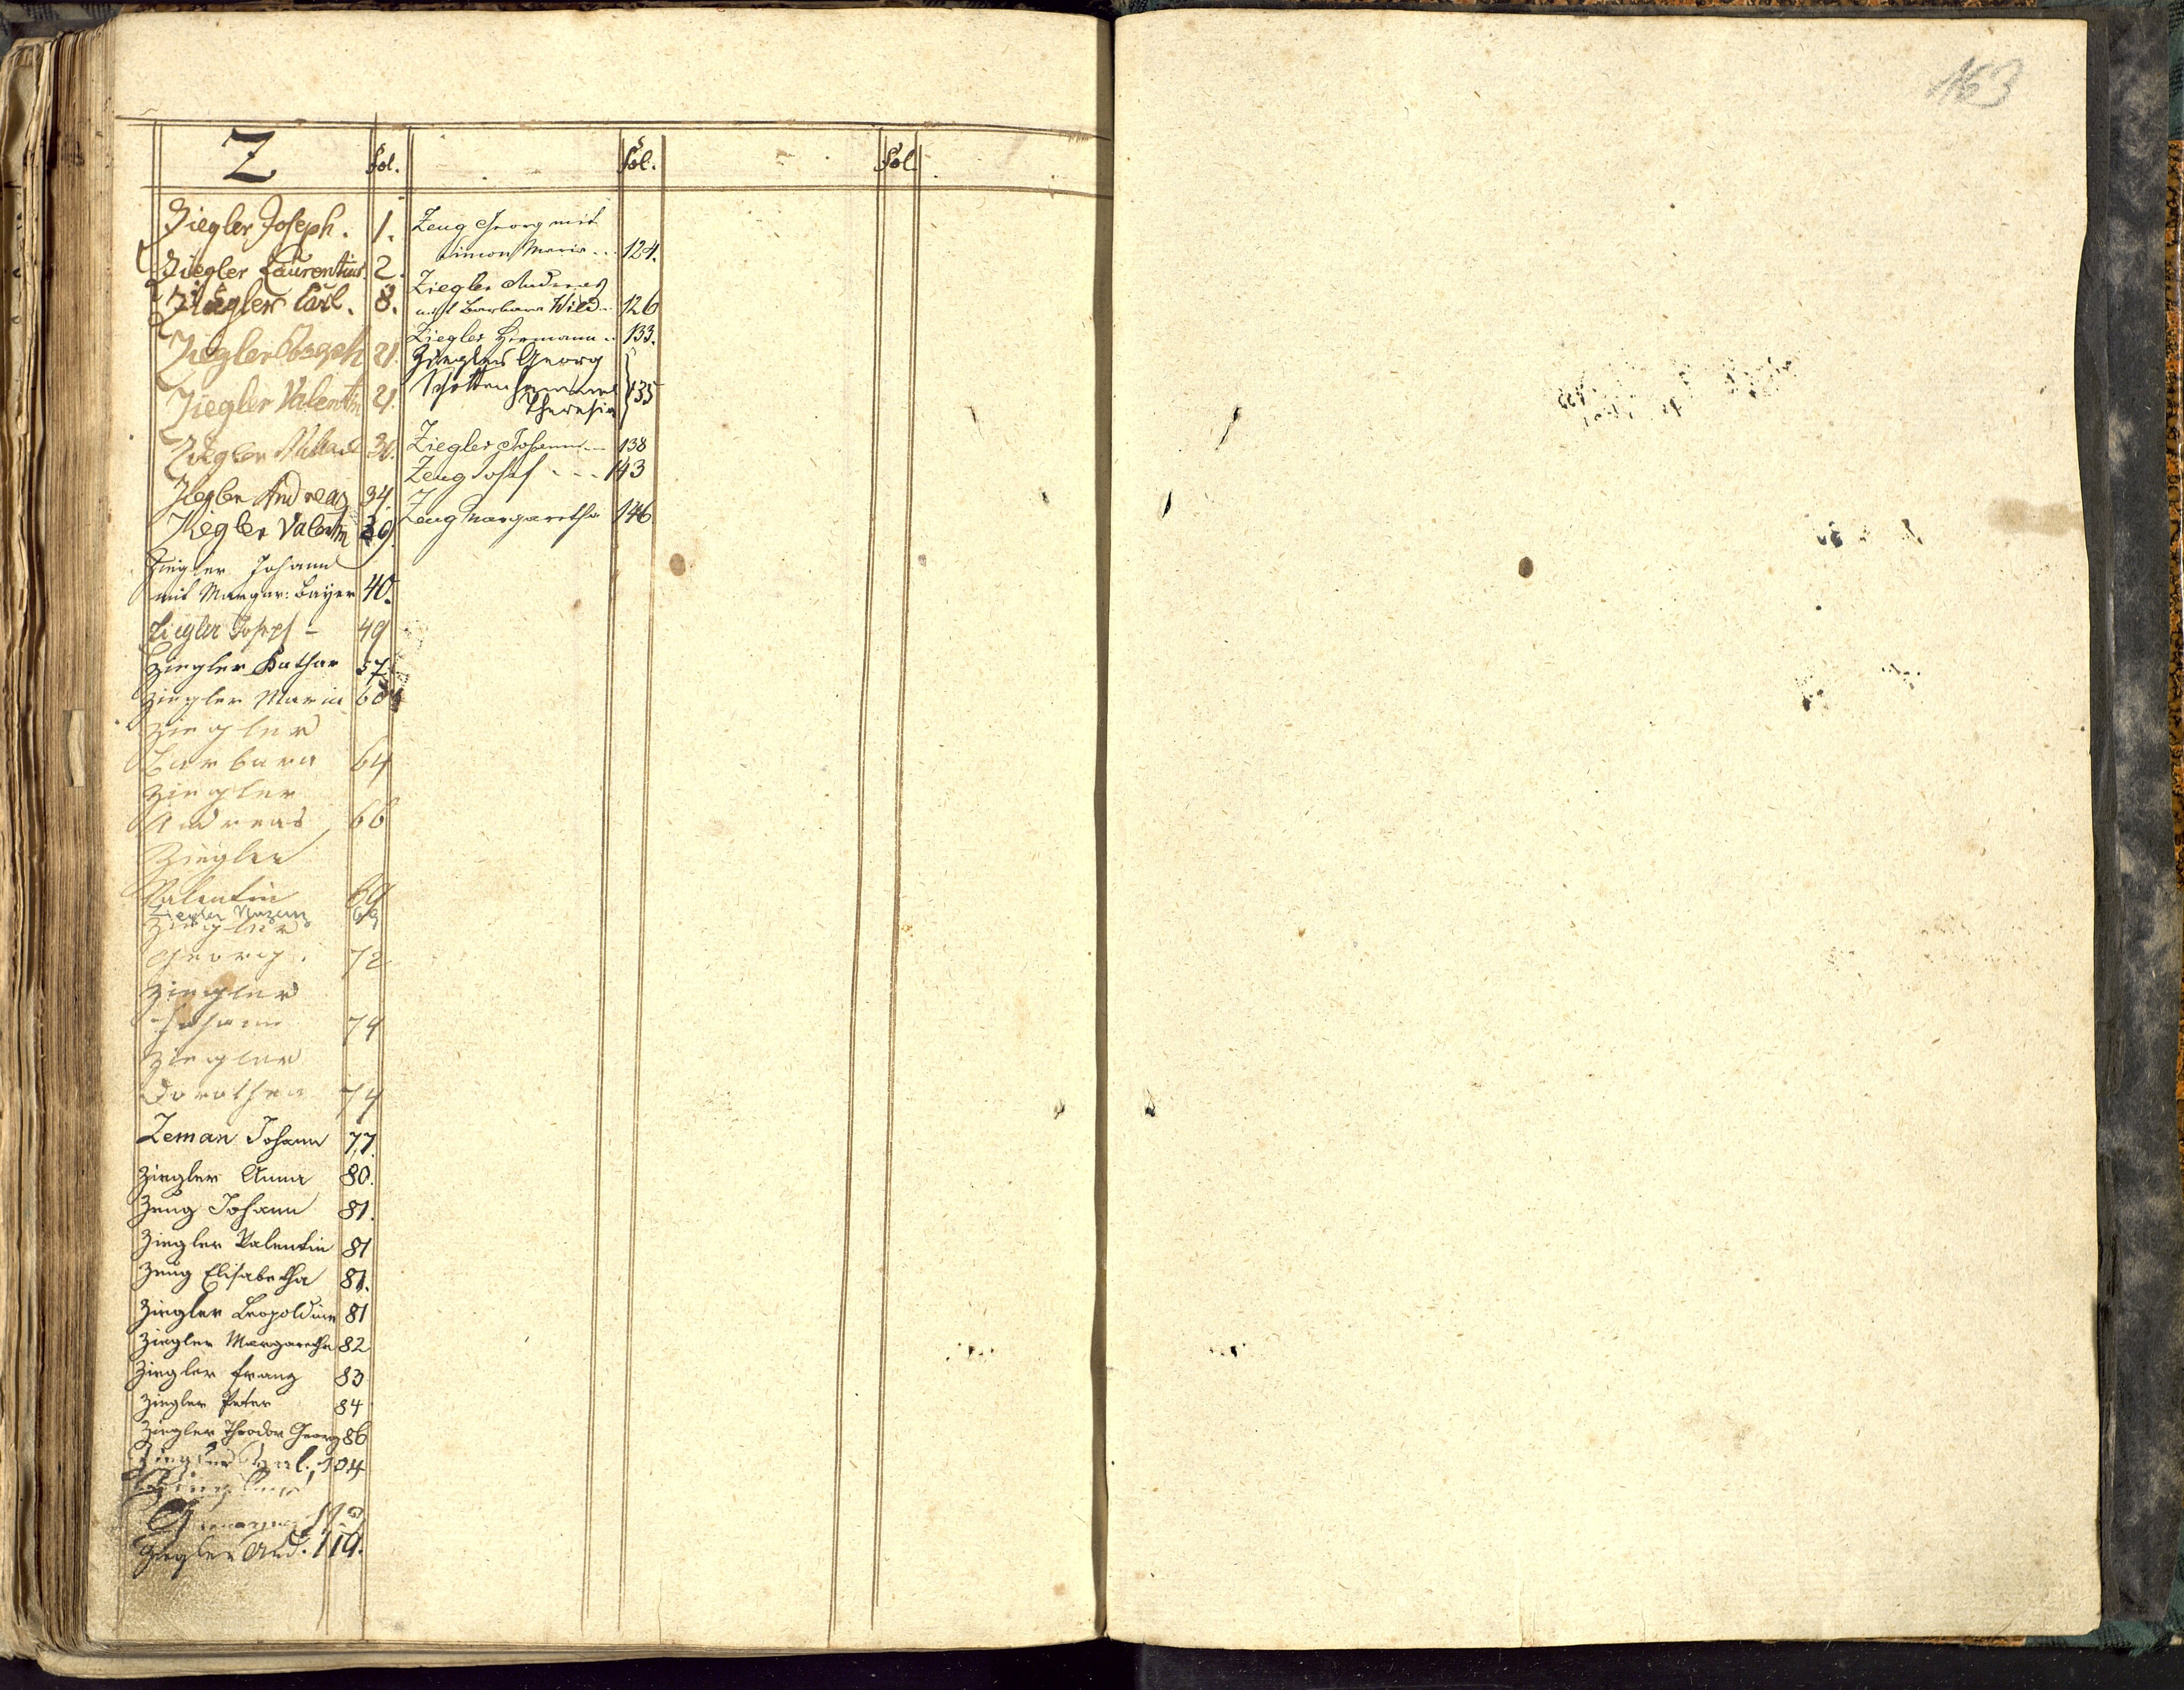 163
Z fol.
Ziegler Joseph. 1.
Ziegler Laurentius. 2.
Ziegler Carl. 8.
Ziegler Joseph 21.
Ziegler Valentin 21.
Ziegler 30.
Ziegler Andreas 34.
Ziegler Valentin 39.
Ziegler Johann
mit Margar: Bayer 40.
Ziegler Josef - 49
Ziegler Kathar 57.
Ziegler Maria 60
Ziegler
Barbara 64
Ziegler
Andreas 66
Ziegler
Valentin 69
Ziegler 69
Ziegler
Georg. 72
Ziegler
Johann 74
Ziegler
Dorothea 74
Zeman Johann 77.
Ziegler Anna 80.
Zeug Johann 81.
Ziegler Valentin 81
Zeug Elisabetha 81.
Ziegler Leopoldine 81
Ziegler Margaretha 82
Ziegler Franz 83
Ziegler Peter 84
Ziegler Theodor Georg 86
Ziegler Val. 104
Ziegler
Ziegler And. 119.
fol.
Zeug Georg mit
Simon Maria .. 124.
Ziegler Andreas
mit Barbara Wild .. 126
Ziegler Hermann .. 133.
Ziegler Georg
Schottenhammel
Theresia 135
Ziegler Johann --- 138
Zeug Josef - - - 143
Zeug Margaretha 146
fol